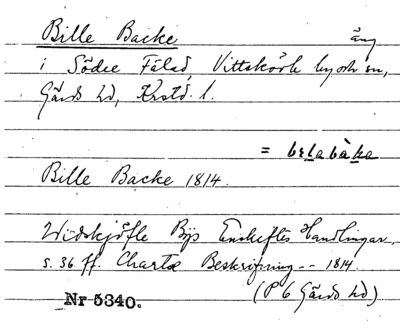 Bille Backe äng
i Södre Fälad, Vittskövle by och sn,
Gärds hd, Krstd. l.
= belabàka
Bille Backe 1814.
Widskjöfle Bys Enskiftes Handlingar,
s. 36 ff. Charta Beskrifning -- 1814.
(P 6 Gärds hd)
Nr 5340.